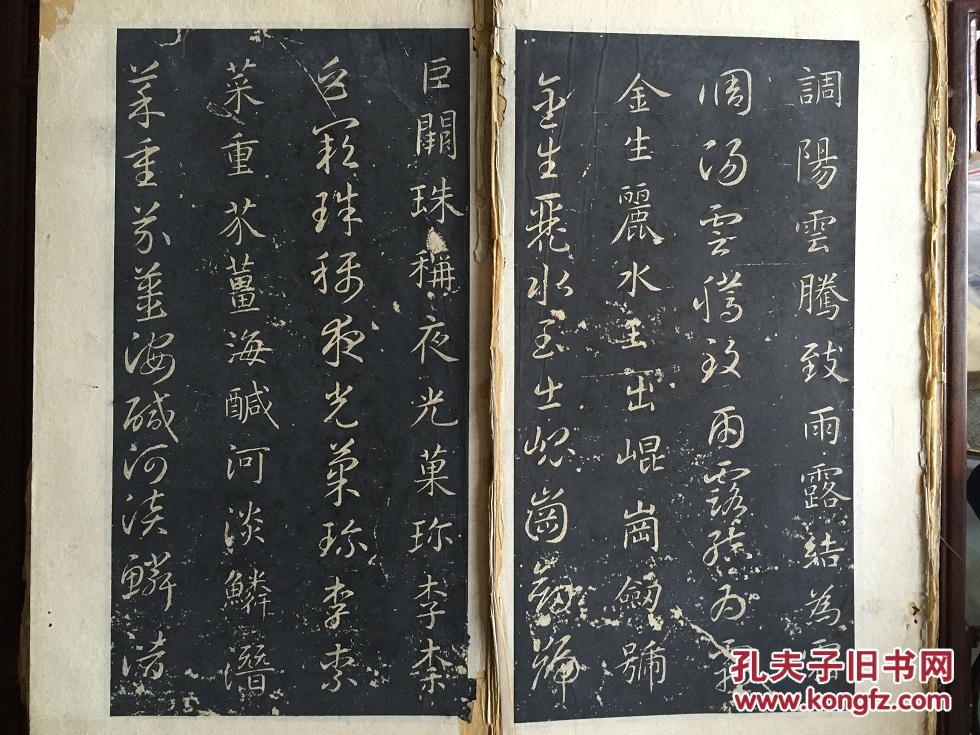 調陽雲騰致雨露結為霜
調陽雲騰致雨露結為霜
金生麗水玉出崐崗劒號
金生麗水玉出崐崗劒號
巨闕珠稱夜光菓珎李柰
巨闕珠稱夜光菓珎李柰
菜重芥薑海醎河淡鱗潛
菜重芥薑海醎河淡鱗潛
孔夫子旧书网
www.kongfz.com